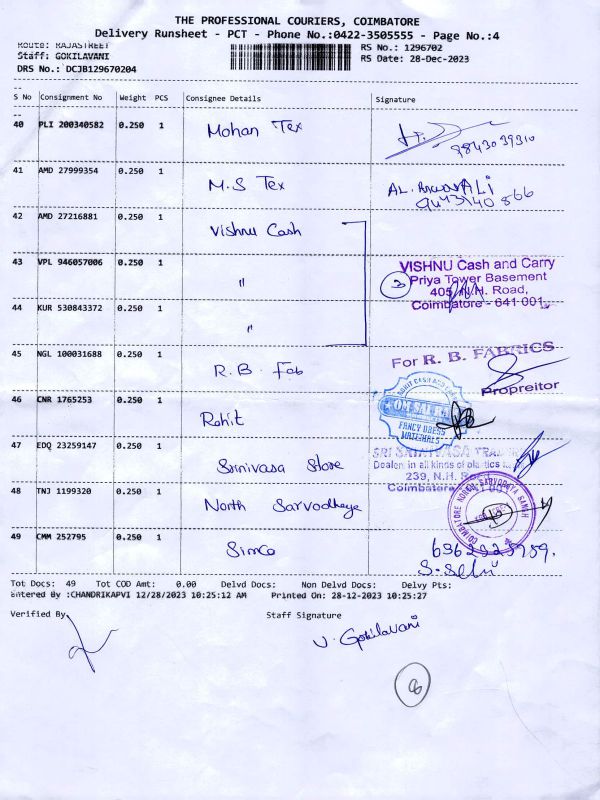 THE PROFESSIONAL COURIERS, COIMBATORE
Delivery Runsheet - PCT - Phone No.:0422-3505555 - Page No.:4
Route: RAJASTREET
RS No.: 1296702
Staff: GOKILAVANI
RS Date: 28-Dec-2023
DRS No.: DCJB129670204
S No Consignment No Weight PCS Consignee Details Signature
40 PLI 200340582 0.250 1 Mohan Tex
9843039310
41 AMD 27999354 0.250 1 M.S Tex
42 AMD 27216881 0.250 1 Vishnu Cash
43 VPL 946057006 0.250 1 "
VISHNU Cash and Carry
Priya Tower Basement
405, N.H. Road,
Coimbatore - 641 001.
3
44 KUR 530843372 0.250 1 "
45 NGL 100031688 0.250 1 R.B. Fab
For R. B. FABRICS
Propreitor
46 CNR 1765253 0.250 1 Rohit
FANCY DRESS
MATERIALS
47 EDQ 23259147 0.250 1 Srinivasa Store
Dealer in all kinds of plastics
239, N.H. Road
Coimbatore
48 TNJ 1199320 0.250 1 North Sarvodheya
COIMBATORE NORTH SARVODAYA SANGH
49 CMM 252795 0.250 1 Simco
Tot Docs: 49 Tot COD Amt: 0.00 Delvd Docs: Non Delvd Docs: Delvy Pts:
Entered By :CHANDRIKAPVI 12/28/2023 10:25:12 AM Printed On: 28-12-2023 10:25:27
Verified By
Staff Signature
V. Gokilavani